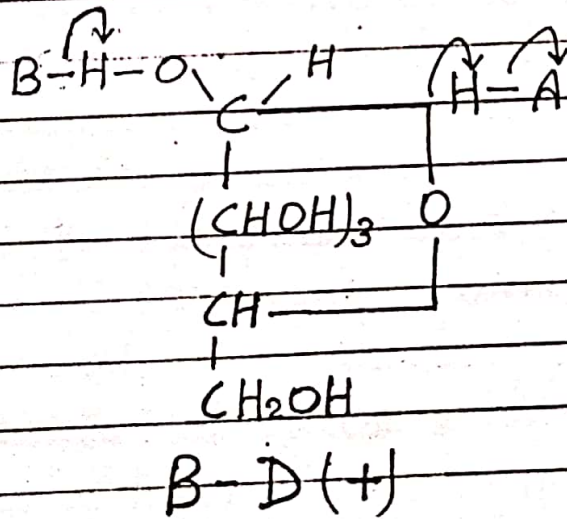 B-H-O H H-A
C
(CHOH)₃ O
CH
CH₂OH
B-D(+)